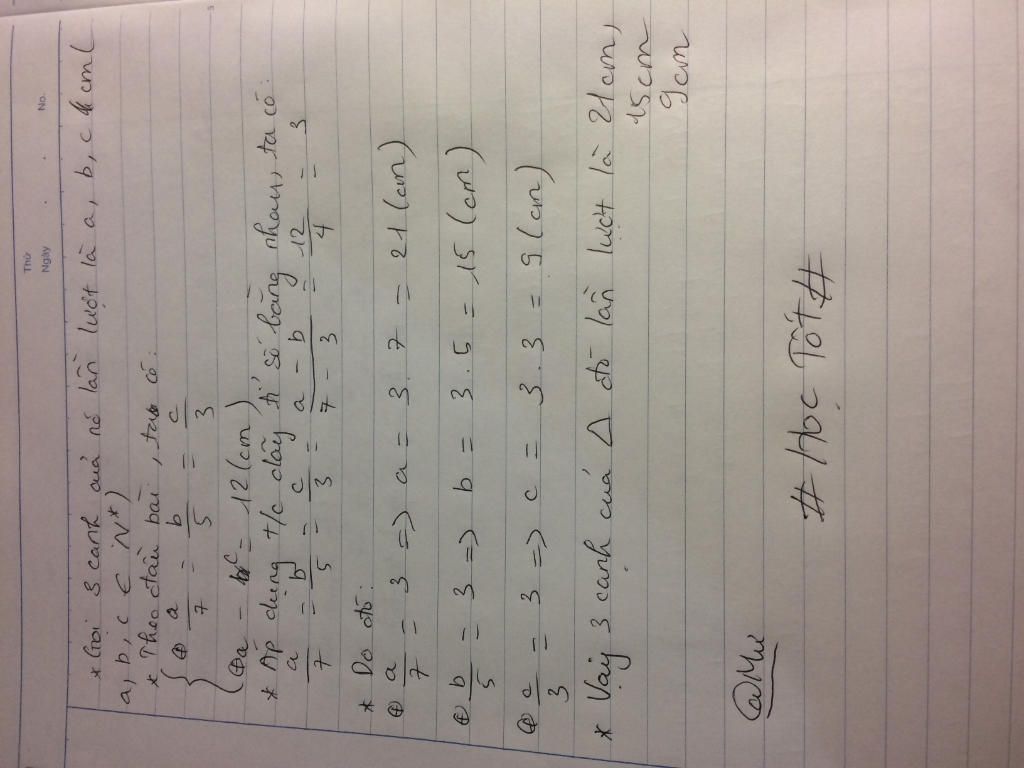 Thứ
Ngày
No.
* Gọi 3 cạnh của nó lần lượt là a, b, c (cm) (
a, b, c ∈ N*)
* Theo đầu bài, ta có:
{ ⊕ a/7 = b/5 = c/3
⊕ a - c = 12 (cm)
* Áp dụng t/c dãy tỉ số bằng nhau, ta có:
a/7 = b/5 = c/3 = a - b/7 - 3 = 12/4 = 3
* Do đó:
⊕ a/7 = 3 => a = 3 . 7 = 21 (cm)
⊕ b/5 = 3 => b = 3 . 5 = 15 (cm)
⊕ c/3 = 3 => c = 3 . 3 = 9 (cm)
* Vậy 3 cạnh của Δ đó lần lượt là 21cm,
15cm
9cm
# Học Tốt #